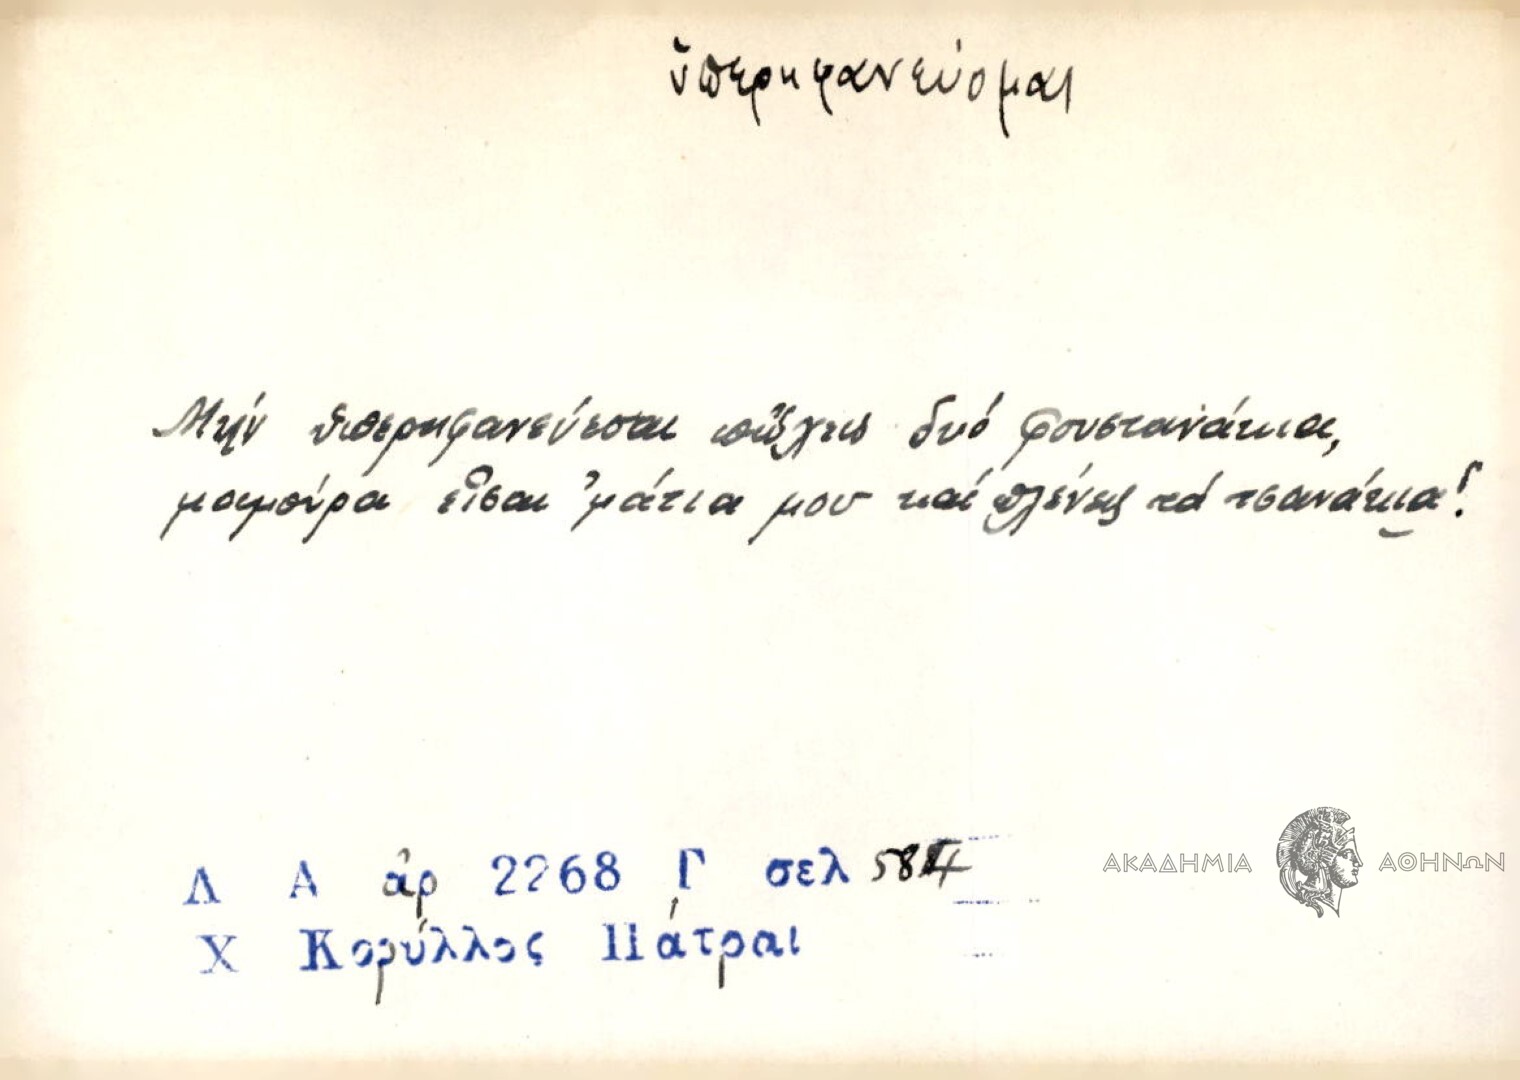 ὑπερηφανεύομαι
Μήν ὑπερηφανεύεσαι πὤχεις δυό φουστανάκια,
μαμούρα εἶσαι 'μάτια μου καί πλένεις τά τσανάκια!
Λ Α ἀρ 2268 Γ σελ 584
Χ Κορύλλος Πάτραι
ΑΚΑΔΗΜΙΑ ΑΘΗΝΩΝ